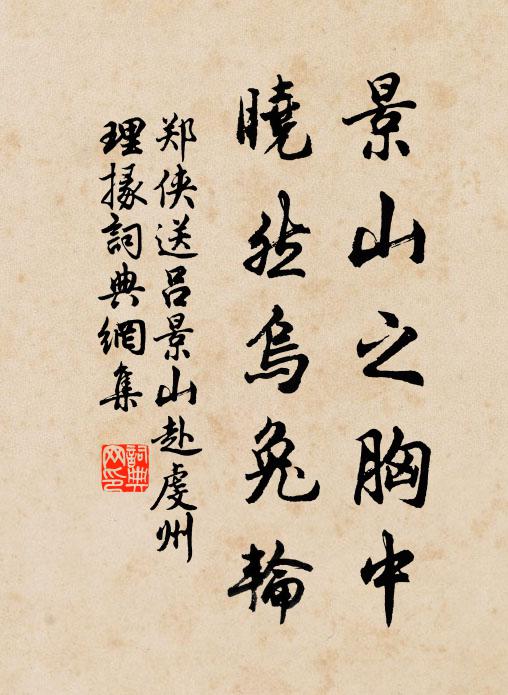 景山之胸中
曉然烏兔輪
郑侠送吕景山赴虔州
理掾詞典網集
詞典网印